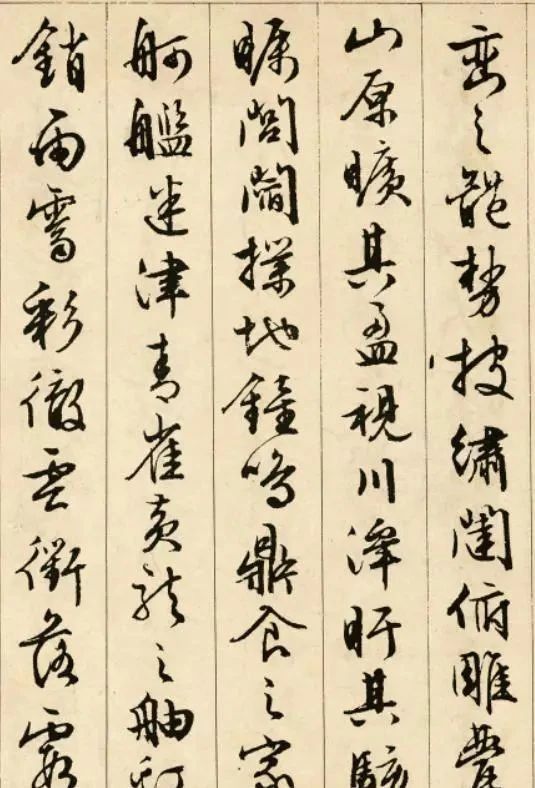 巒之體勢披繡闥俯雕甍
山原曠其盈視川澤盱其駭
矚閭閻撲地鐘鳴鼎食之家
舸艦迷津青雀黃龍之舳虹
銷雨霽彩徹雲衢落霞